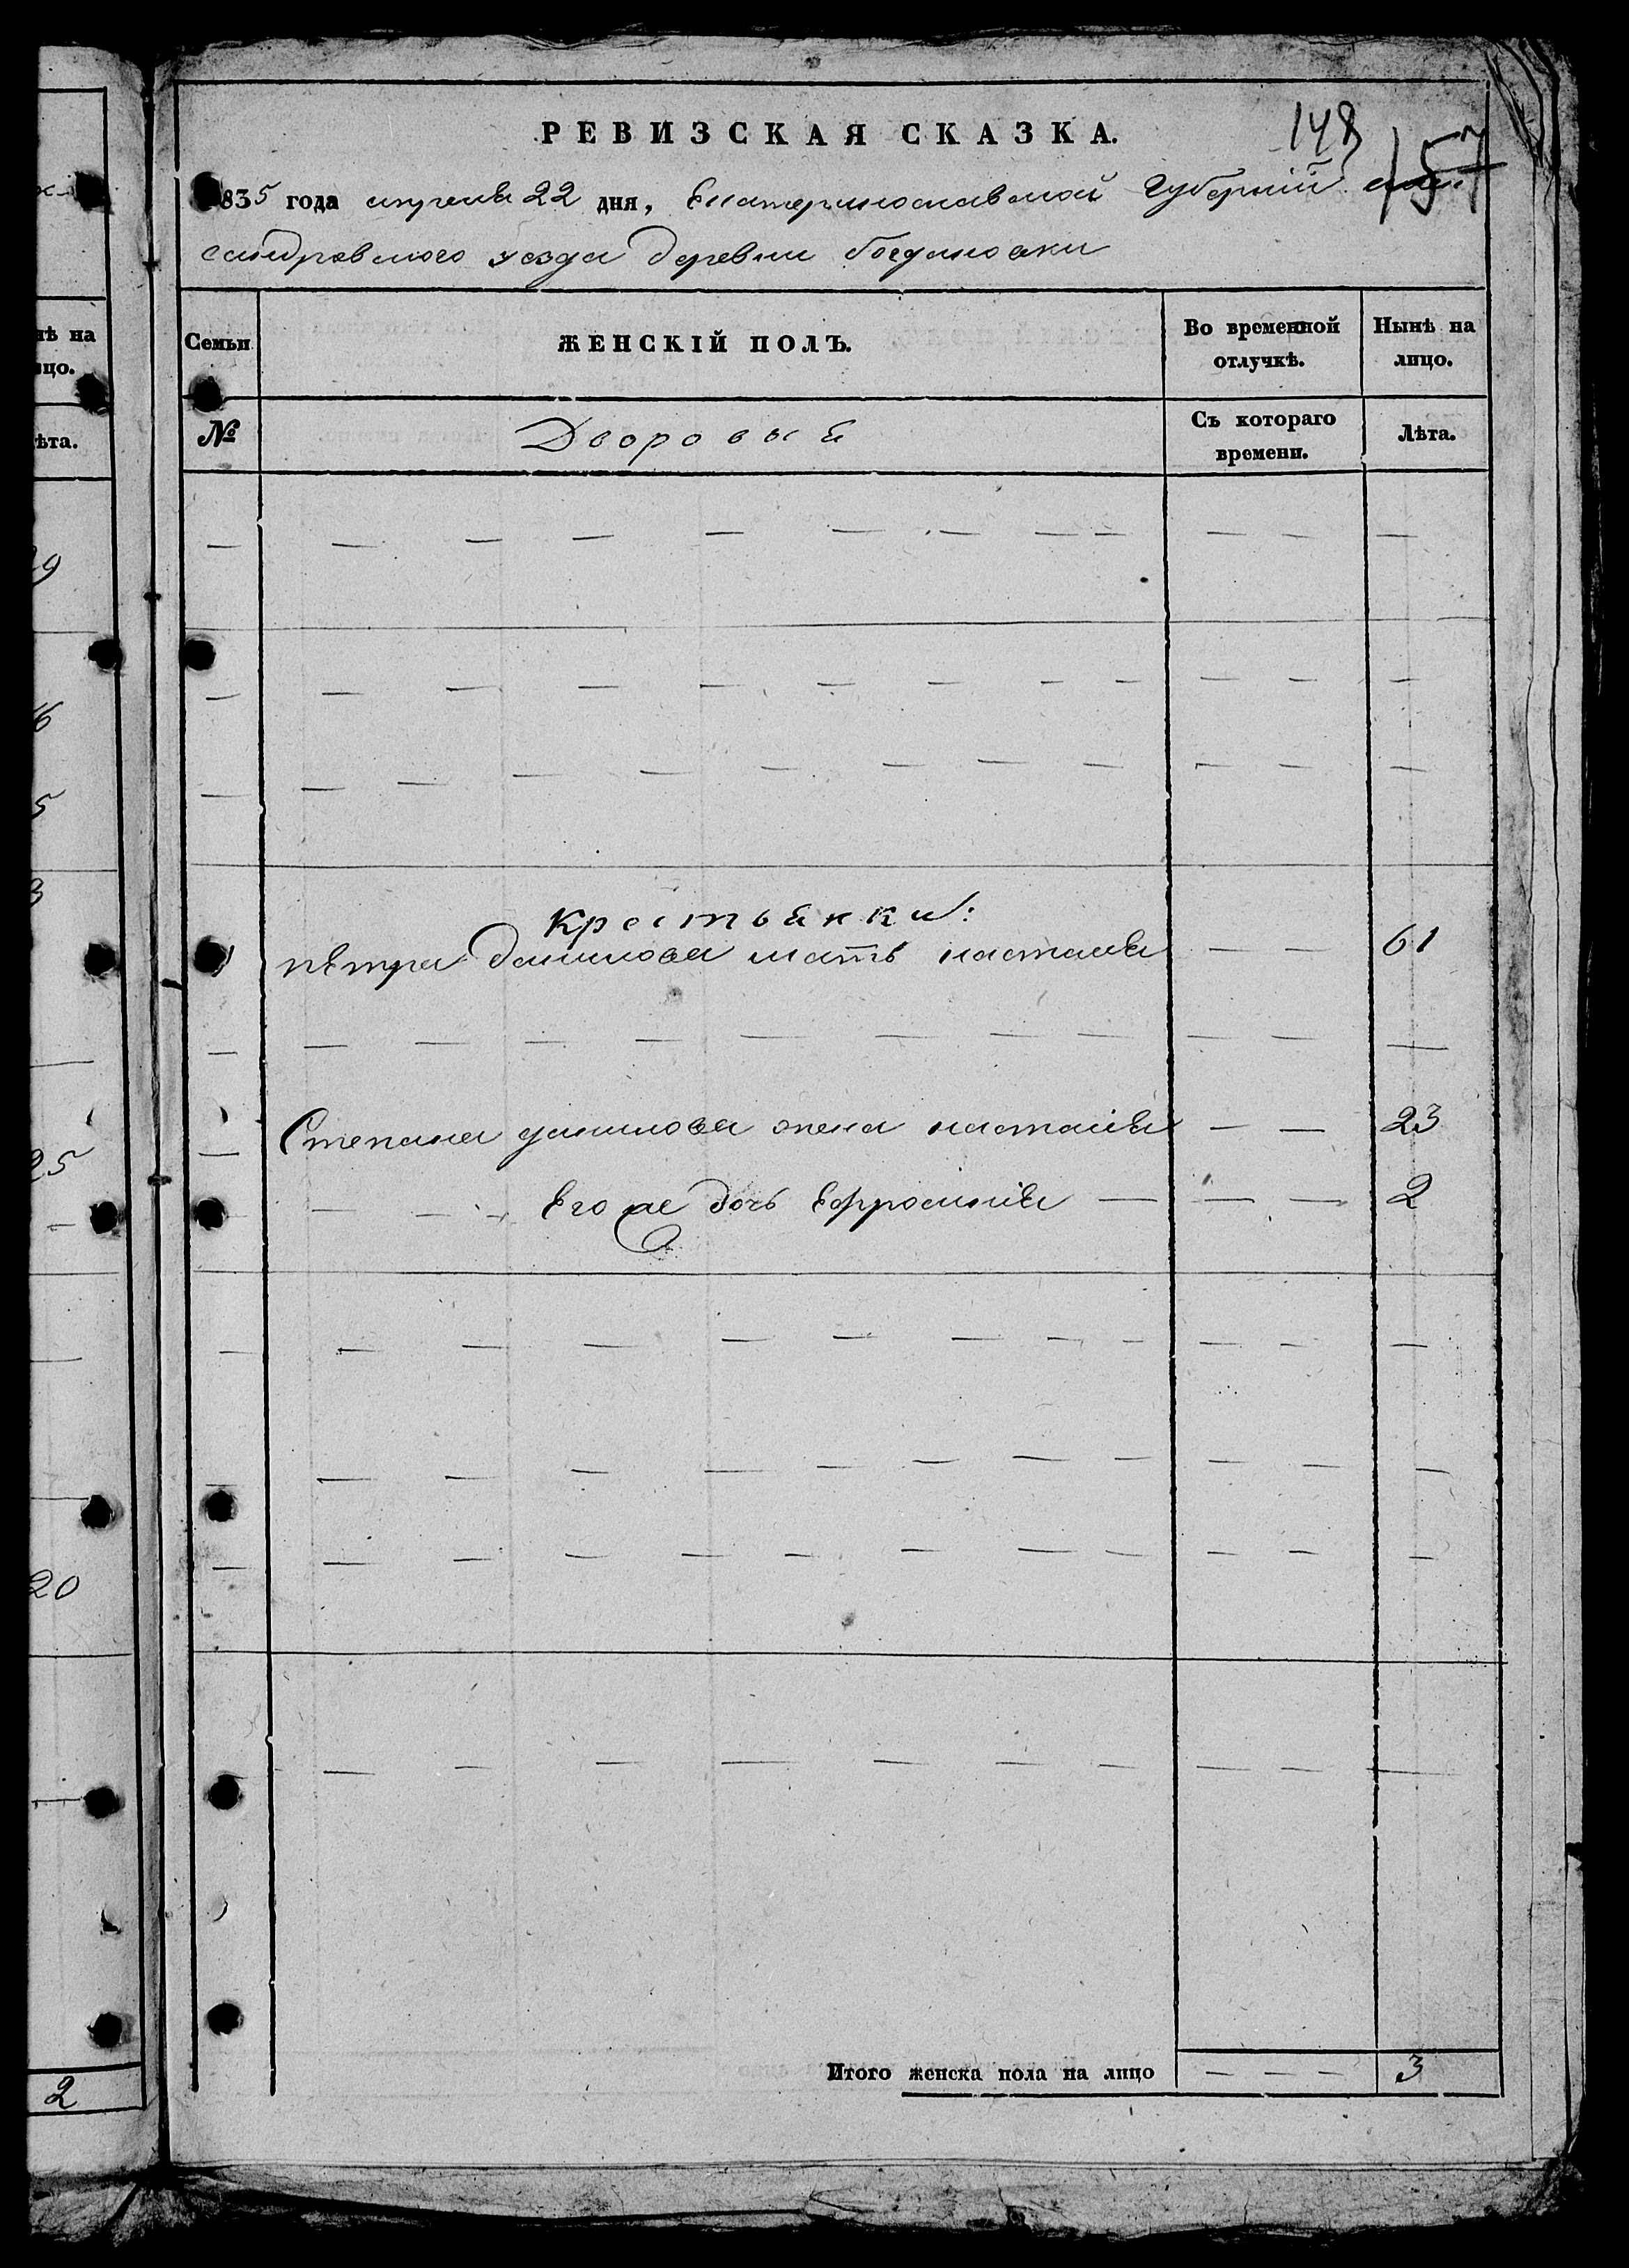 РЕВИЗСКАЯ СКАЗКА.
148
157
835 года апреля 22 дня, Екатеринославской Губернии
сандровского уезда деревни богдановки
нѣ на
цо.
Семьи
ЖЕНСКІЙ ПОЛЪ.
Во временной отлучкѣ.
Нынѣ на лицо.
ѣта.
№
Дворовыя
Съ котораго времени.
Лѣта.
Крестьянки:
1 петра данилова мать наталья — — 61
Степана данилова жена наталія — — 23
Его же дочь Ефросинія — — — 2
9
6
5
3
25
20
2
Итого женска пола на лицо — — — 3